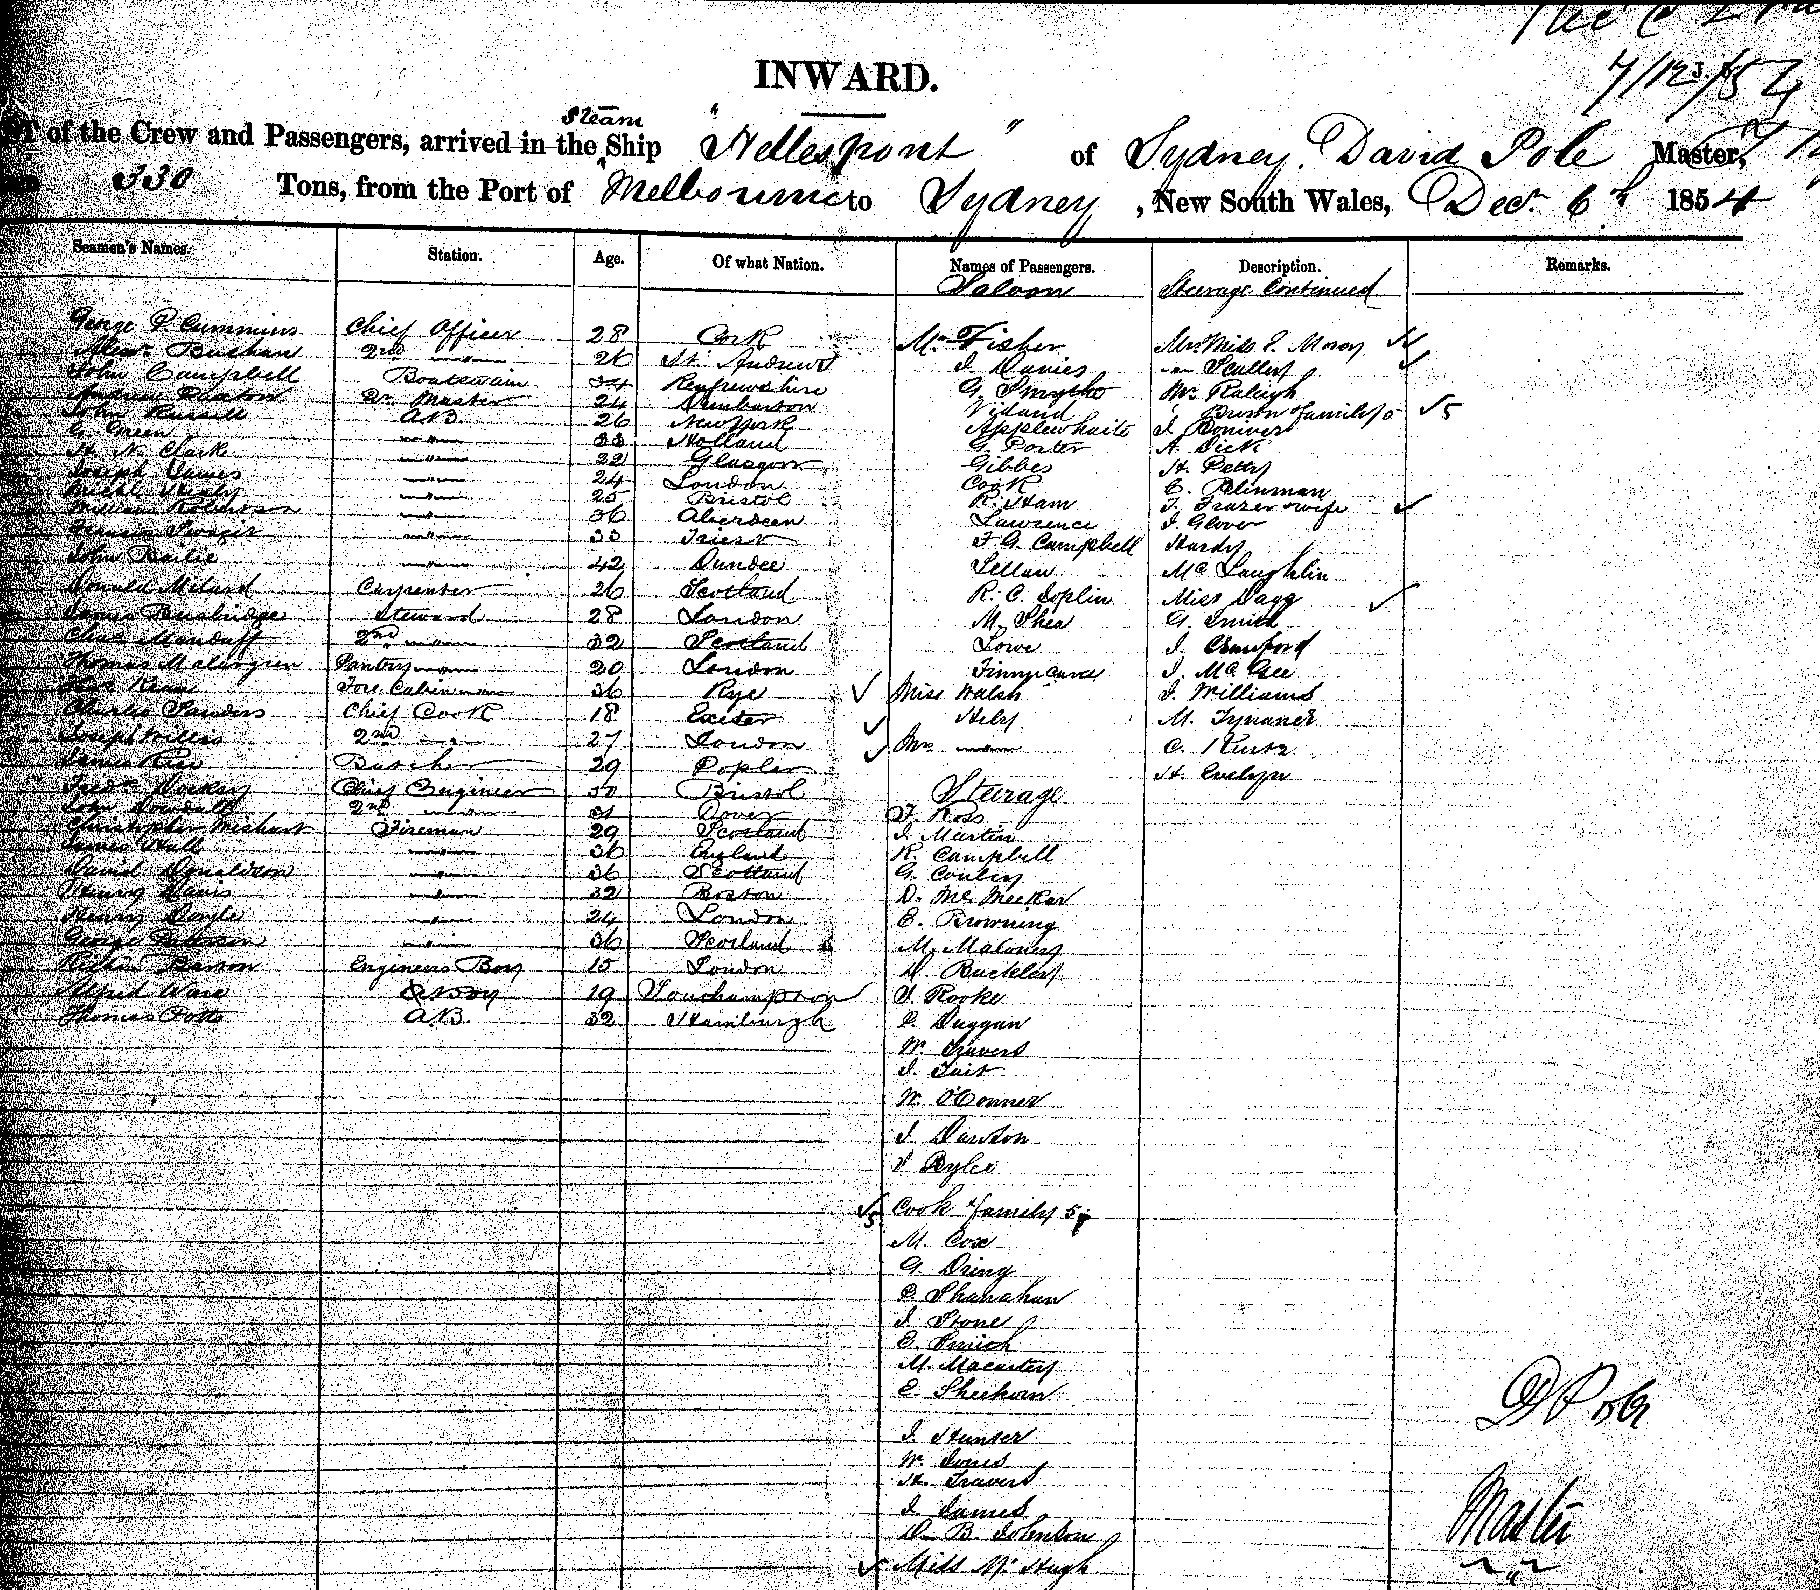 7/12/54
INWARD.
of the Crew and Passengers, arrived in the Steam Ship "Hellespont" of Sydney, David Pole Master,
330 Tons, from the Port of Melbourne to Sydney, New South Wales, Dec. 6th 1854
Seamen's Names. Station. Age. Of what Nation. Names of Passengers. Description. Remarks.
Saloon Steerage Continued
George P Cummins Chief Officer 28 Cork Mr Fisher Mrs Miss P. Moroy
Alexr Buchan 2nd —"— 26 St Andrews J Davies —"— Scully
John Campbell Boatswain 34 Renfrewshire G. Smythe Mr Raleigh
Andrew Paton Qr Master 24 Dumbarton Viland Bruson & family 5 √5
John Russell A.B. 26 New York Applewhaite J Conivers
G. Green —"— 33 Holland G. Porter A. Dick
H. N. Clark —"— 22 Glasgow Gibbes H. Petty
Joseph James —"— 24 London Cook C. Plinman
Michl Healy —"— 25 Bristol R. Ham T. Frazer & wife
William Robinson —"— 36 Aberdeen Lawrence J. Glover
—"— 33 Triest F. G. Campbell Hardy
John Bailie —"— 42 Dundee Sellan Mc Laughlin
Donald Millard Carpenter 26 Scotland R. C. Joplin Miss Dagg
James Burbridge Steward 28 London M. Shea G. Smith
Chas Monduff 2nd —"— 32 Scotland Lowe J. Crauford
Thomas Malengreen Pantry —"— 20 London Finnycane J. Mc Gee
Kean Fore Cabin —"— 36 Rye Miss Walsh J. Williams
Charles Sanders Chief Cook 18 Exeter Hely M. Tynaner
Joseph Willis 2nd —"— 27 London Mrs —"— C. Kurtz
James Rice Butcher 29 Poplar H. Evelyn
Fredk Hockey Chief Engineer 30 Bristol Sterage
John Dowdall 2nd —"— 31 Dover F. Ross
Christopher Wishart Fireman 29 Scotland J. Martin
James Hall —"— 36 England R. Campbell
David Donaldson —"— 36 Scotland G. Conley
Henry Davis —"— 32 Boston D. Mc Meekar
Henry Doyle —"— 24 London E. Browning
George Paterson —"— 36 Scotland M. Maloney
Barron Engineers Boy 15 London D. Buckley
Alfred Ware Boy 19 Southampton J. Rooke
Thomas Potts A.B. 32 Hamburgh D. Duggan
W. Travers
J. Tait
W. O'Conner
J. Dawson
J Ryler
√5 Cook & family 5
M. Cox
G. Dring
C. Shanahan
J. Stone
E. Smith
M. Macartey
E Sheehan
J. Hunter
W. Jones
H. Travers
J. James
D. B. Johnson
Miss Mc Hugh
D Pole
Master